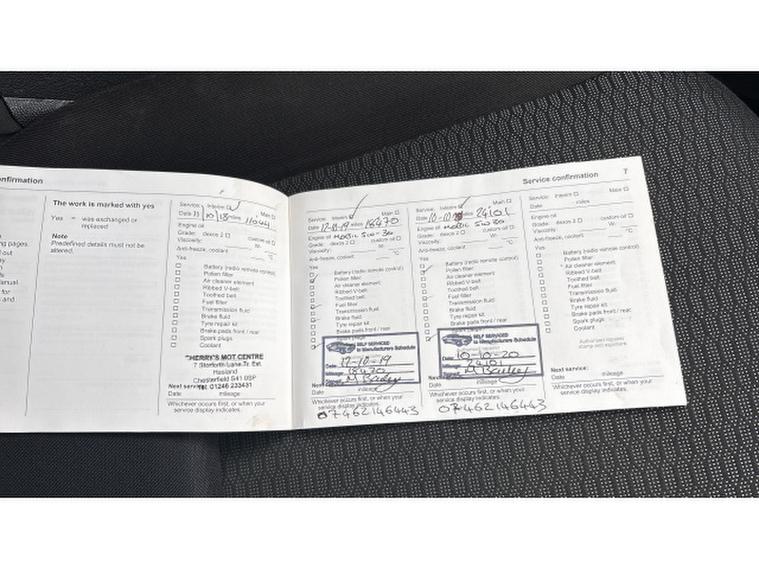 onfirmation
The work is marked with yes
Yes = was exchanged or
replaced
Note
Predefined details must not be
altered.
ng pages.
d out
and
Service: Interim Main
Date 11/10/18 miles 11044
Engine oil
Grade: dexos 2 custom oil
Viscosity: W-
Anti-freeze, coolant °C
Yes
Battery (radio remote control)
Pollen filter
Air cleaner element
Ribbed V-belt
Toothed belt
Fuel filter
Transmission fluid
Brake fluid
Tyre repair kit
Brake pads front / rear
Spark plugs
Coolant
HERRY'S MOT CENTRE
7 Storforth Lane Tr. Est.
Hasland
Chesterfield S41 0SP
Tel. 01246 233431
Next service:
Date mileage
Whichever occurs first, or when your
service display indicates.
Service: Interim Main
Date 12-10-19 miles 18470
Engine oil MOBIL 5W-30
Grade: dexos 2 custom oil
Viscosity: W-
Anti-freeze, coolant °C
Yes
Battery (radio remote control)
Pollen filter
Air cleaner element
Ribbed V-belt
Toothed belt
Fuel filter
Transmission fluid
Brake fluid
Tyre repair kit
Brake pads front / rear
SELF SERVICED
to Manufacturers Schedule
Date: 12-10-19
Mileage: 18470
M Bailey
Date mileage
Whichever occurs first, or when your
service display indicates.
07462146443
Service: Interim Main
Date 10-10 miles 24101
Engine oil MOBIL 5W 30
Grade: dexos 2 custom oil
Viscosity: W-
Anti-freeze, coolant °C
Yes
Battery (radio remote control)
Pollen filter
Air cleaner element
Ribbed V-belt
Toothed belt
Fuel filter
Transmission fluid
Brake fluid
Tyre repair kit
Brake pads front / rear
SELF SERVICED
to Manufacturers Schedule
Date: 10-10-20
Mileage: 24101
M Bailey
Date mileage
Whichever occurs first, or when your
service display indicates.
07462146443
Service confirmation 7
Service: Interim Main
Date miles
Engine oil
Grade: dexos 2 custom oil
Viscosity: W-
Anti-freeze, coolant °C
Yes
Battery (radio remote control)
Pollen filter
Air cleaner element
Ribbed V-belt
Toothed belt
Fuel filter
Transmission fluid
Brake fluid
Tyre repair kit
Brake pads front / rear
Spark plugs
Coolant
Authorised repairer
stamp and signature
Next service:
Date mileage
Whichever occurs first, or when your
service display indicates.